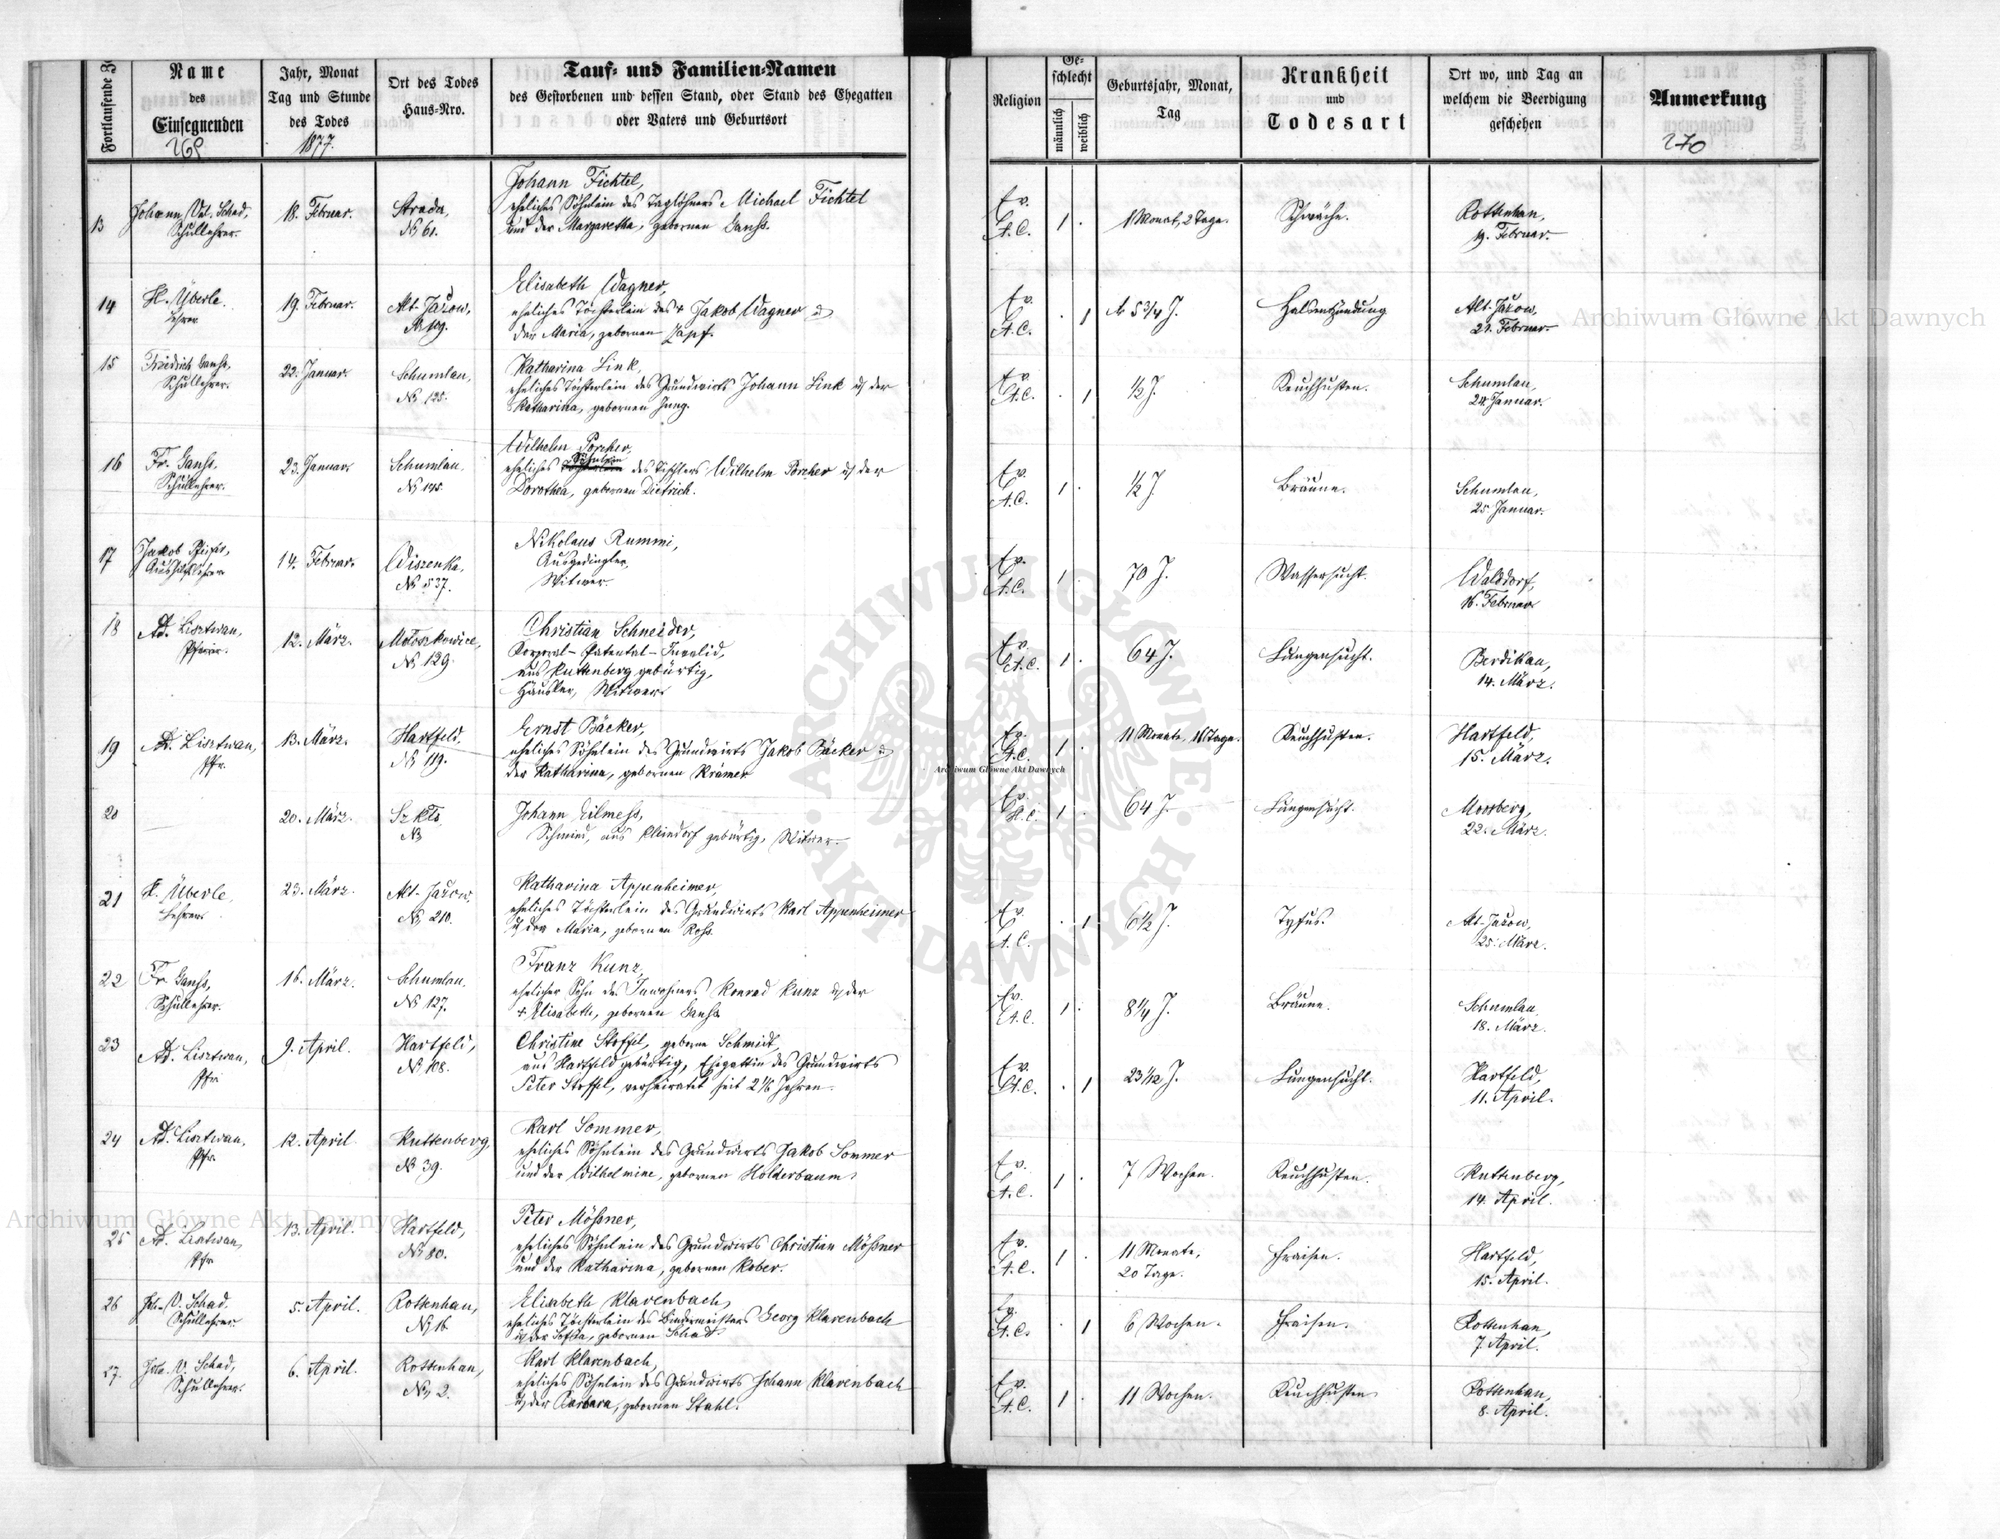 Fortlaufende
Name
des
Einsegnenden
269
Jahr, Monat
Tag und Stunde
des Todes
1877.
Ort des Todes
Haus-Nro.
Tauf- und Familien-Namen
des Gestorbenen und dessen Stand, oder Stand des Ehegatten
oder Vaters und Geburtsort
Religion
Ge-
schlecht
männlich
weiblich
Geburtsjahr, Monat,
Tag
Krankheit
und
Todesart
Ort wo, und Tag an
welchem die Beerdigung
geschehen
Anmerkung
270
13
Johann Val. Schad,
Schullehrer.
18. Februar.
Strada,
No 61.
Johann Fichtel,
eheliches Söhnlein des Taglöhners Michael Fichtel
und der Margaretha, gebornen Ganß.
Ev.
A. C.
1
1 Monat, 2 Tage.
Schwäche.
Rottenhan,
19. Februar.
14
H. Überle.
Lehrer
19. Februar.
Alt-Jażow,
No 109.
Elisabeth Wagner,
eheliches Töchterlein des + Jakob Wagner u
der Maria, gebornen Zapf.
Ev.
A. C.
1
5 3/4 J.
Halsentzündung
Alt-Jażow,
21. Februar.
15
Friedrich Ganß,
Schullehrer.
22. Januar.
Schumlau,
No 125.
Katharina Link,
eheliches Töchterlein des Grundwirts Johann Link u der
Katharina, gebornen Jung.
Ev.
A. C.
1
1/2 J.
Keuchhusten.
Schumlau,
24. Januar.
16
Fr. Ganß,
Schullehrer.
23. Januar.
Schumlau,
No 145.
Wilhelm Porcher,
Söhnlein
eheliches Töchterlein des Tischlers Wilhelm Porcher u der
Dorothea, gebornen Dietrich.
Ev.
A. C.
1
1/2 J.
Bräune.
Schumlau,
25. Januar.
17
Jakob Pfeifer,
Aushilfslehrer
14. Februar.
Wiszenka,
No 537.
Nikolaus Rummi,
Ausgedingler,
Witwer.
Ev.
A. C.
1
70 J.
Wassersucht.
Walddorf,
16. Februar
18
Ad. Lisztwan,
Pfarrer.
12. März.
Mołoszkowice,
No 129.
Christian Schneider,
Korporal-Patental-Invalid,
aus Kuttenberg gebürtig,
Häusler, Witwer.
Ev.
A. C.
1
64 J.
Lungensucht.
Berdikau,
14. März.
19
Ad. Lisztwan,
Pfr.
13. März.
Hartfeld,
No 119.
Ernst Bäcker,
eheliches Söhnlein des Grundwirts Jakob Bäcker u
der Katharina, gebornen Krämer
Ev.
A. C.
1
11 Monate, Tage.
Keuchhusten.
Hartfeld,
15. März.
20
20. März.
Szkło
No
Johann Eilmess,
Schmied, aus gebürtig, Witwer.
Ev.
H. C.
1
64 J.
Lungensucht.
Mossberg,
22. März.
21
H. Überle,
Lehrer.
23. März.
Alt-Jażow,
No 210.
Katharina Appenheimer,
eheliches Töchterlein des Grundwirts Karl Appenheimer
u der Maria, gebornen Roß.
Ev.
A. C.
1
6 1/2 J.
Tyfus.
Alt-Jażow,
25. März.
22
Fr. Ganß,
Schullehrer.
16. März.
Schumlau.
No 127.
Franz Kunz,
ehelicher Sohn des Inwohners Konrad Kunz u der
+ Elisabeth, gebornen Ganß
Ev.
A. C.
1
8 1/4 J.
Bräune.
Schumlau
18. März.
23
Ad. Lisztwan,
Pfr
9. April.
Hartfeld,
No 108.
Christine Stoffel, geborne Schmidt,
aus Hartfeld gebürtig, Ehegattin des Grundwirts
Peter Stoffel, verheiratet seit Jahren.
Ev.
A. C.
1
Lungensucht.
Hartfeld,
11. April.
24
Ad. Lisztwan,
Pfr.
12. April
Kuttenberg,
No 39.
Karl Sommer,
eheliches Söhnlein des Grundwirts Jakob Sommer
und der Wilhelmine, gebornen Holderbaum
Ev.
A. C.
1
7 Wochen.
Keuchhusten.
Kuttenberg,
14. April.
25
Ad. Lisztwan,
Pfr
13. April.
Hartfeld,
No 80.
Peter Mößner,
eheliches Söhnlein des Grundwirts Christian Mößner
und der Katharina, gebornen Kober.
Ev.
A. C.
1
11 Monate,
20 Tage.
Fraisen.
Hartfeld,
15. April.
26
Joh. V. Schad,
Schullehrer.
5. April.
Rottenhan,
No 16
Elisabeth Klarenbach,
eheliches Töchterlein des Bindermeisters Georg Klarenbach
u der Sofia, gebornen Schad
Ev.
A. C.
1
6 Wochen.
Fraisen.
Rottenhan,
7. April.
27.
Joh. V. Schad,
Schullehrer.
6. April.
Rottenhan,
No 2.
Karl Klarenbach,
eheliches Söhnlein des Grundwirts Johann Klarenbach
u der Barbara, gebornen Stahl.
Ev.
A. C.
1
11 Wochen.
Keuchhusten
Rottenhan,
8. April.
Archiwum Główne Akt Dawnych
Archiwum Główne Akt Dawnych
Archiwum Główne Akt Dawnych
ARCHIWUM GŁÓWNE AKT DAWNYCH